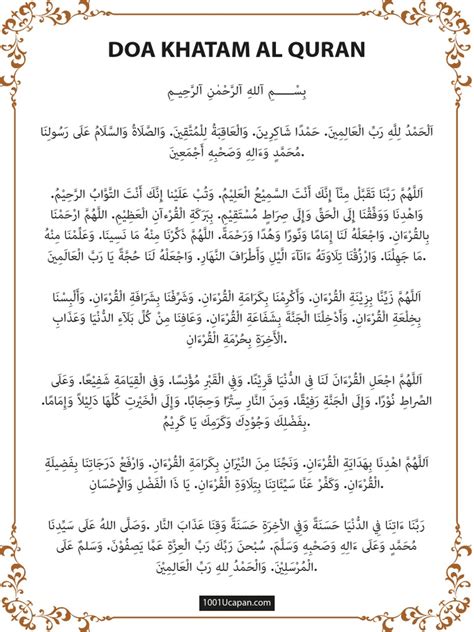 DOA KHATAM AL QURAN
بِسْـــــمِ ٱللهِ ٱلرَّحْمٰنِ ٱلرَّحِيـمِ
اَلْحَمْدُ لِلَّهِ رَبِّ الْعَالَمِينَ. حَمْدًا شَاكِرِينَ. وَالْعَاقِبَةُ لِلْمُتَّقِينَ. وَالصَّلَاةُ وَالسَّلَامُ عَلَى رَسُولِنَا
مُحَمَّدٍ وَءَالِهِ وَصَحْبِهِ أَجْمَعِينَ.
اَللَّهُمَّ رَبَّنَا تَقَبَّلْ مِنَّآ إِنَّكَ أَنْتَ السَّمِيعُ الْعَلِيمُ. وَتُبْ عَلَيْنا إِنَّكَ أَنْتَ التَّوَّابُ الرَّحِيْمُ.
وَاهْدِنَا وَوَفِّقْنَا إِلَى الْحَقِّ وَإِلَى صِرَاطٍ مُسْتَقِيْمٍ. بِبَرَكَةِ الْقُرْءَآنِ الْعَظِيْمِ. اللَّهُمَّ ارْحَمْنَا
بِالْقُرْءَانِ. وَاجْعَلْهُ لَنَا إِمَامًا وَنُورًا وَهُدًا وَرَحْمَةً. اللَّهُمَّ ذَكِّرْنَا مِنْهُ مَا نَسِينَا. وَعَلِّمْنَا مِنْهُ
مَا جَهِلْنَا. وَارْزُقْنَا تِلَاوَتَهُ ءَانَآءَ الَّيْلِ وَأَطْرَافَ النَّهَارِ. وَاجْعَلْهُ لَنَا حُجَّةً يَا رَبَّ الْعَالَمِيْنَ
اَللَّهُمَّ زَيِّنَّا بِزِيْنَةِ الْقُرْءَانِ. وَأَكْرِمْنَا بِكَرَامَةِ الْقُرْءَانِ. وَشَرِّفْنَا بِشَرَافَةِ الْقُرْءَانِ. وَأَلْبِسْنَا
بِخِلْعَةِ الْقُرْءَانِ. وَأَدْخِلْنَا الْجَنَّةَ بِشَفَاعَةِ الْقُرْءَانِ. وَعَافِنَا مِنْ كُلِّ بَلَآءِ الدُّنْيَا وَعَذَابِ
الْأَخِرَةِ بِحُرْمَةِ الْقُرْءَانِ.
اَللَّهُمَّ اجْعَلِ الْقُرْءَانَ لَنَا فِي الدُّنْيَا قَرِيْنًا. وَفِي الْقَبْرِ مُؤْنِسًا. وَفِي الْقِيَامَةِ شَفِيْعًا. وَعَلَى
الصِّرَاطِ نُوْرًا. وَإِلَى الْجَنَّةِ رَفِيْقًا. وَمِنَ النَّارِ سِتْرًا وَحِجَابًا. وَإِلَى الْخَيْرٰتِ كُلِّهَا دَلِيْلًا وَإِمَامًا.
بِفَضْلِكَ وَجُوْدِكَ وَكَرَمِكَ يَا كَرِيْمُ
اَللَّهُمَّ اهْدِنَا بِهِدَايَةِ الْقُرْءَانِ. وَنَجِّنَا مِنَ النِّيْرَانِ بِكَرَامَةِ الْقُرْءَانِ. وَارْفَعْ دَرَجَاتِنَا بِفَضِيلَةِ
الْقُرْءَانِ. وَكَفِّرْ عَنَّا سَيِّئَاتِنَا بِتِلَاوَةِ الْقُرْءَانِ. يَا ذَا الْفَضْلِ وَالْإِحْسَانِ
رَبَّنَا ءَاتِنَا فِي الدُّنْيَا حَسَنَةً وَفِي الأَخِرَةِ حَسَنَةً وَقِنَا عَذَابَ النَّارِ .وَصَلَّى اللهُ عَلَى سَيِّدِنَا
مُحَمَّدٍ وَعَلَى ءَالِهِ وَصَحْبِهِ وَسَلَّمَ. سُبْحٰنَ رَبِّكَ رَبِّ الْعِزَّةِ عَمَّا يَصِفُوْنَ. وَسَلمٌ عَلَى
الْمُرْسَلِيْنَ. وَالْحَمْدُ لِلهِ رَبِّ الْعَالَمِيْنَ
1001Ucapan.com